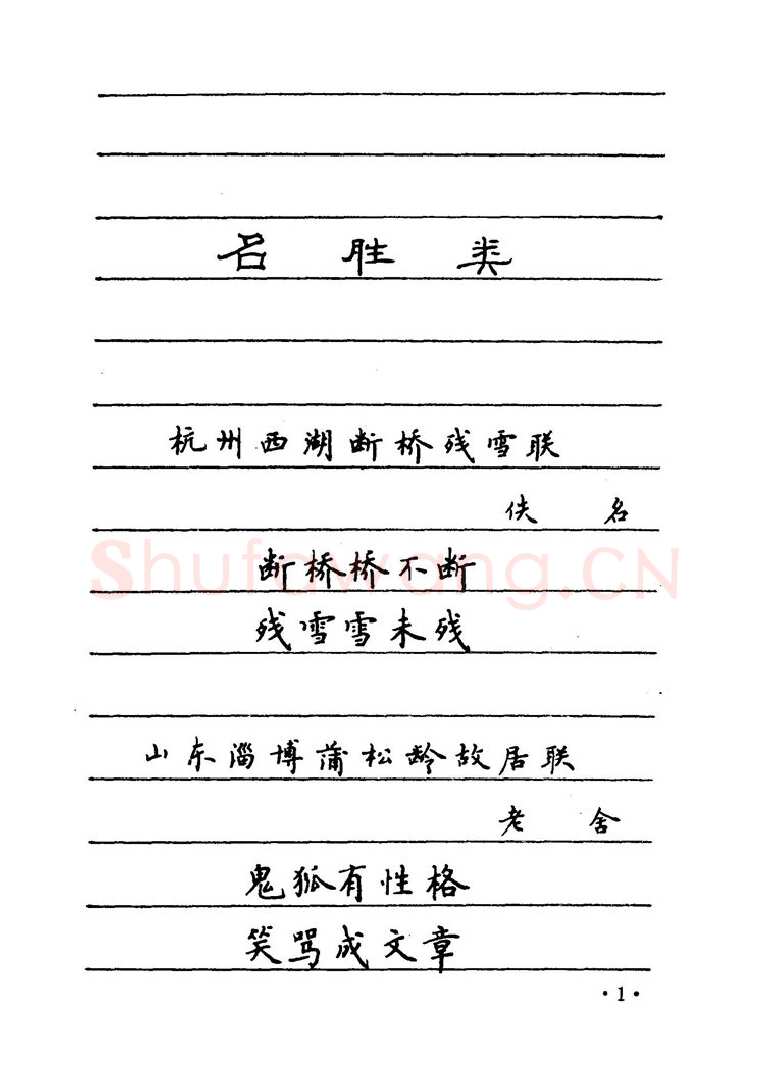 名胜类
杭州西湖断桥残雪联
佚名
断桥桥不断
残雪雪未残
山东淄博蒲松龄故居联
老舍
鬼狐有性格
笑骂成文章
·1·
Shufawang.CN